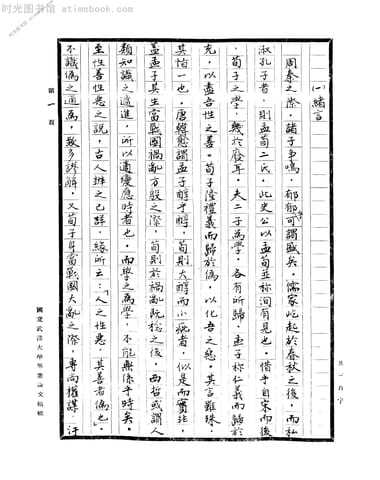 (一)緒言
周秦之際，諸子爭鳴，郁郁可謂盛矣。儒家屹起於春秋之後，而私
淑孔子者，則孟荀二氏，此史公以孟荀並称洵有見也。惜乎自宋而後
荀子之學，幾於廢耳，夫二子為學，各有所歸，孟子称仁義而歸於
充，以盡吾性之善。荀子隆禮義而歸於偽，以化吾之惡。其言雖殊，
其恉一也，唐韓愈謂孟子醇乎醇，荀則大醇而小疵者，似是而實非，
蓋孟子其生當戰國禍亂方殷之際，荀則於禍亂阮棯之後，西哲或謂人
類知識之遞進，所以適變應時者也，而學之為學，不能無係乎時矣。
至性善性惡之說，古人辨之已詳，緣所云：「人之性惡，其善者偽也」，
不識偽之通為，致多謬解，又荀子身當戰國大亂之際，專向權謀，汗
第一頁
國立武漢大學畢業論文稿紙
共一百字
时光图书馆 atimebook.com
时光图书馆 atimebook.com